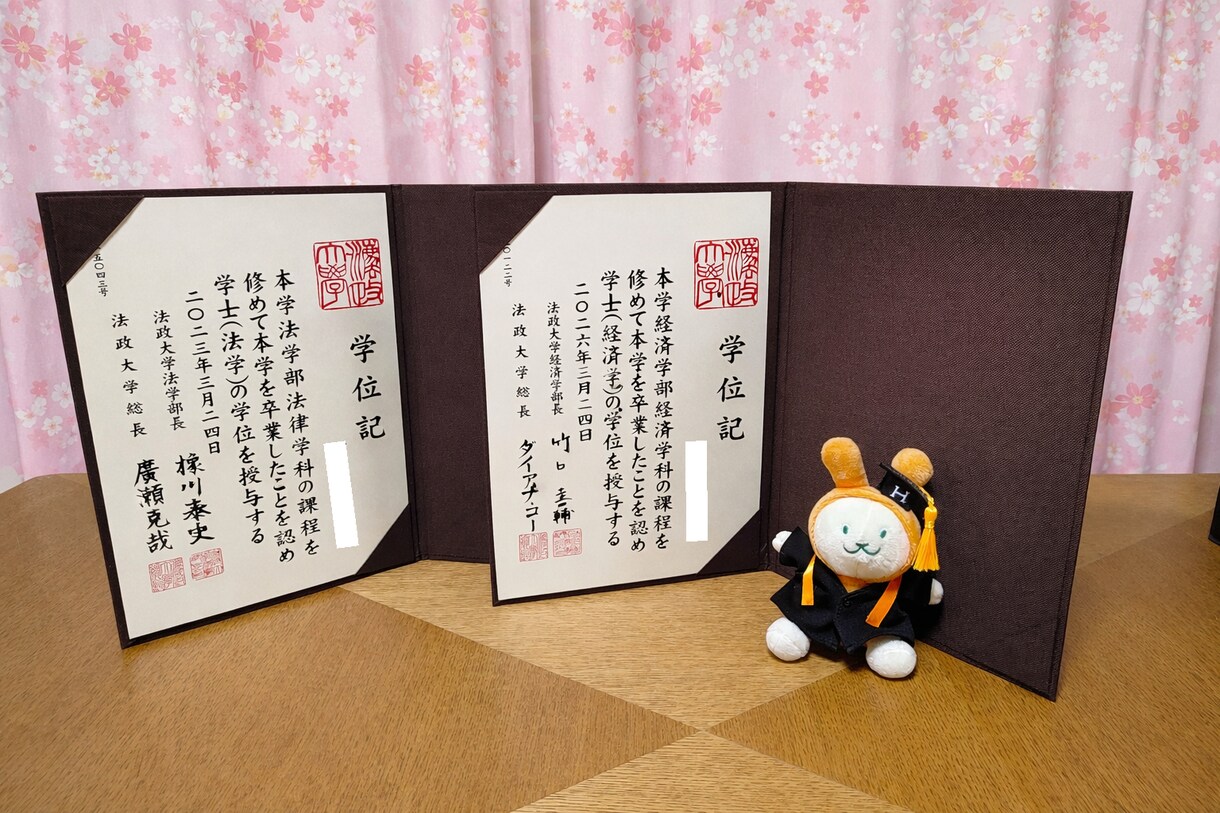 灋政
大學
学位記
本学法学部法律学科の課程を
修めて本学を卒業したことを認め
学士(法学)の学位を授与する
二〇二三年三月二四日
法政大学法学部長 橡川泰史
法政大学総長 廣瀬克哉
五〇四三号
灋政
大學
学位記
本学経済学部経済学科の課程を
修めて本学を卒業したことを認め
学士(経済学)の学位を授与する
二〇二六年三月二四日
法政大学経済学部長 竹口圭輔
法政大学総長 ダイアナ・コー
〇一二二号
H